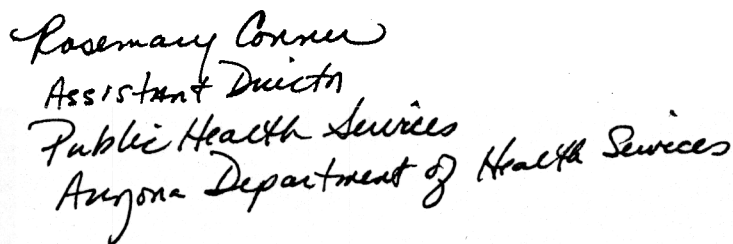 Rosemary Conner
Assistant Director
Public Health Services
Arizona Department of Health Services